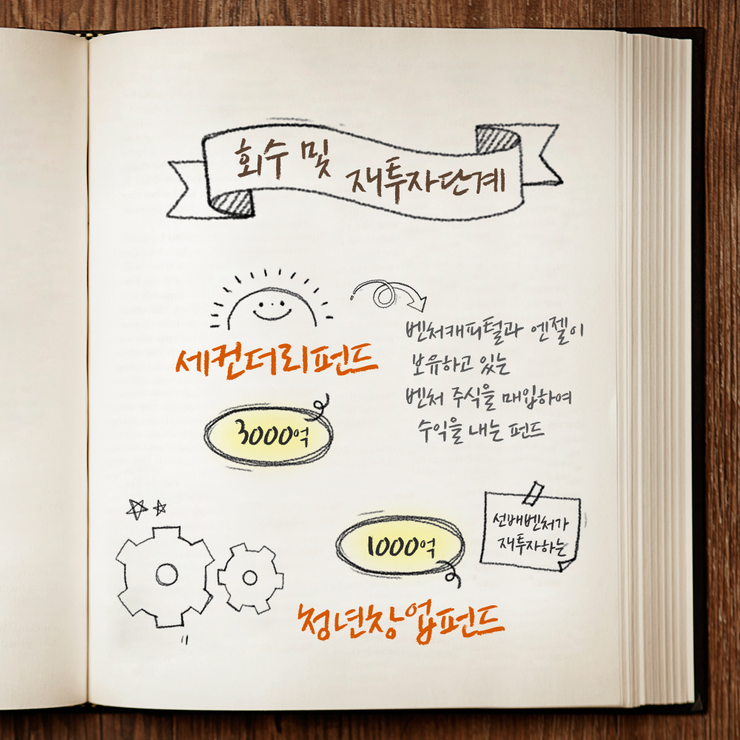 회수 및 재투자단계
세컨더리펀드
3000억
벤처캐피털과 엔젤이
보유하고 있는
벤처 주식을 매입하여
수익을 내는 펀드
1000억
선배벤처가
재투자하는
청년창업펀드